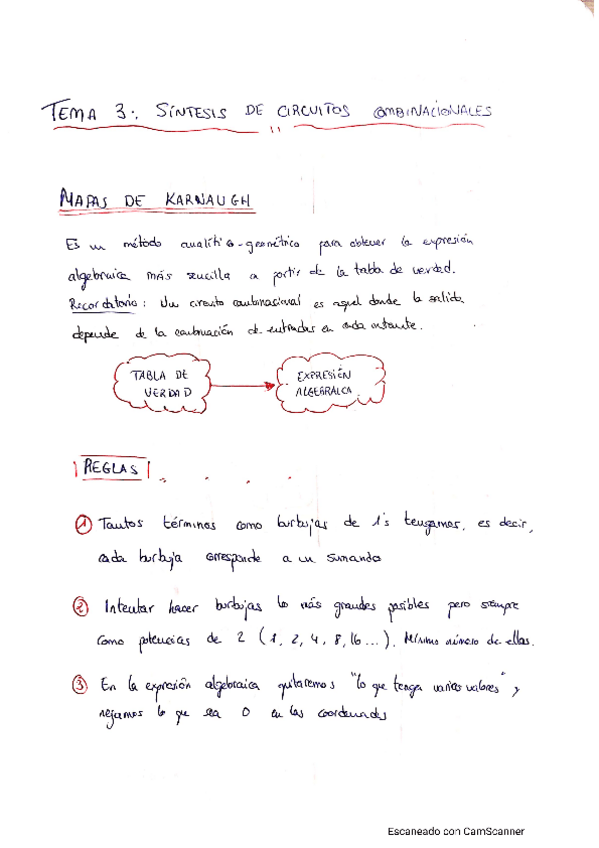 TEMA 3: SÍNTESIS DE CIRCUITOS COMBINACIONALES
MAPAS DE KARNAUGH
Es un método analítico-geométrico para obtener la expresión
algebraica más sencilla a partir de la tabla de verdad.
Recordatorio: Un circuito combinacional es aquel donde la salida
depende de la combinación de entradas en cada instante.
TABLA DE
VERDAD
EXPRESIÓN
ALGEBRAICA
REGLAS
1 Tantos términos como burbujas de 1's tengamos, es decir,
cada burbuja corresponde a un sumando
2 Intentar hacer burbujas lo más grandes posibles pero siempre
como potencias de 2 (1, 2, 4, 8, 16 ...). Mínimo número de ellas.
3 En la expresión algebraica quitaremos "lo que tenga varios valores" y
negamos lo que sea 0 en las coordenadas
Escaneado con CamScanner